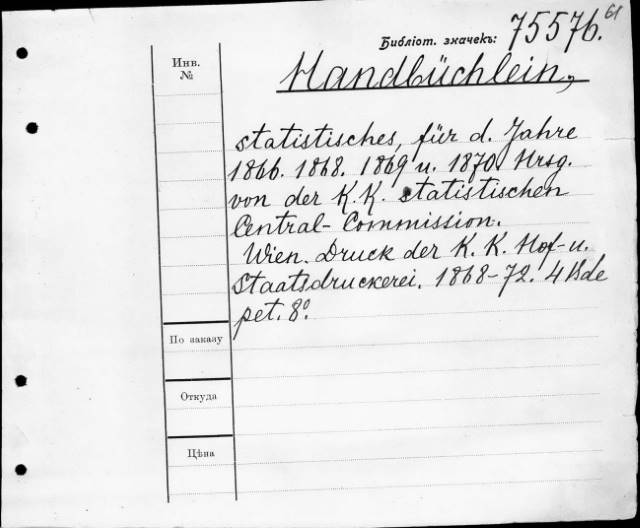 61
Библіот. значекъ: 75576.
Инв.
№
Handbüchlein,
statistisches, für d. Jahre
1866. 1868. 1869 u. 1870. Hrsg.
von der K. K. statistischen
Central-Commission.
Wien. Druck der K. K. Hof- u.
Staatsdruckerei. 1868-72. 4 Bde
pet. 8º.
По заказу
Откуда
Цѣна